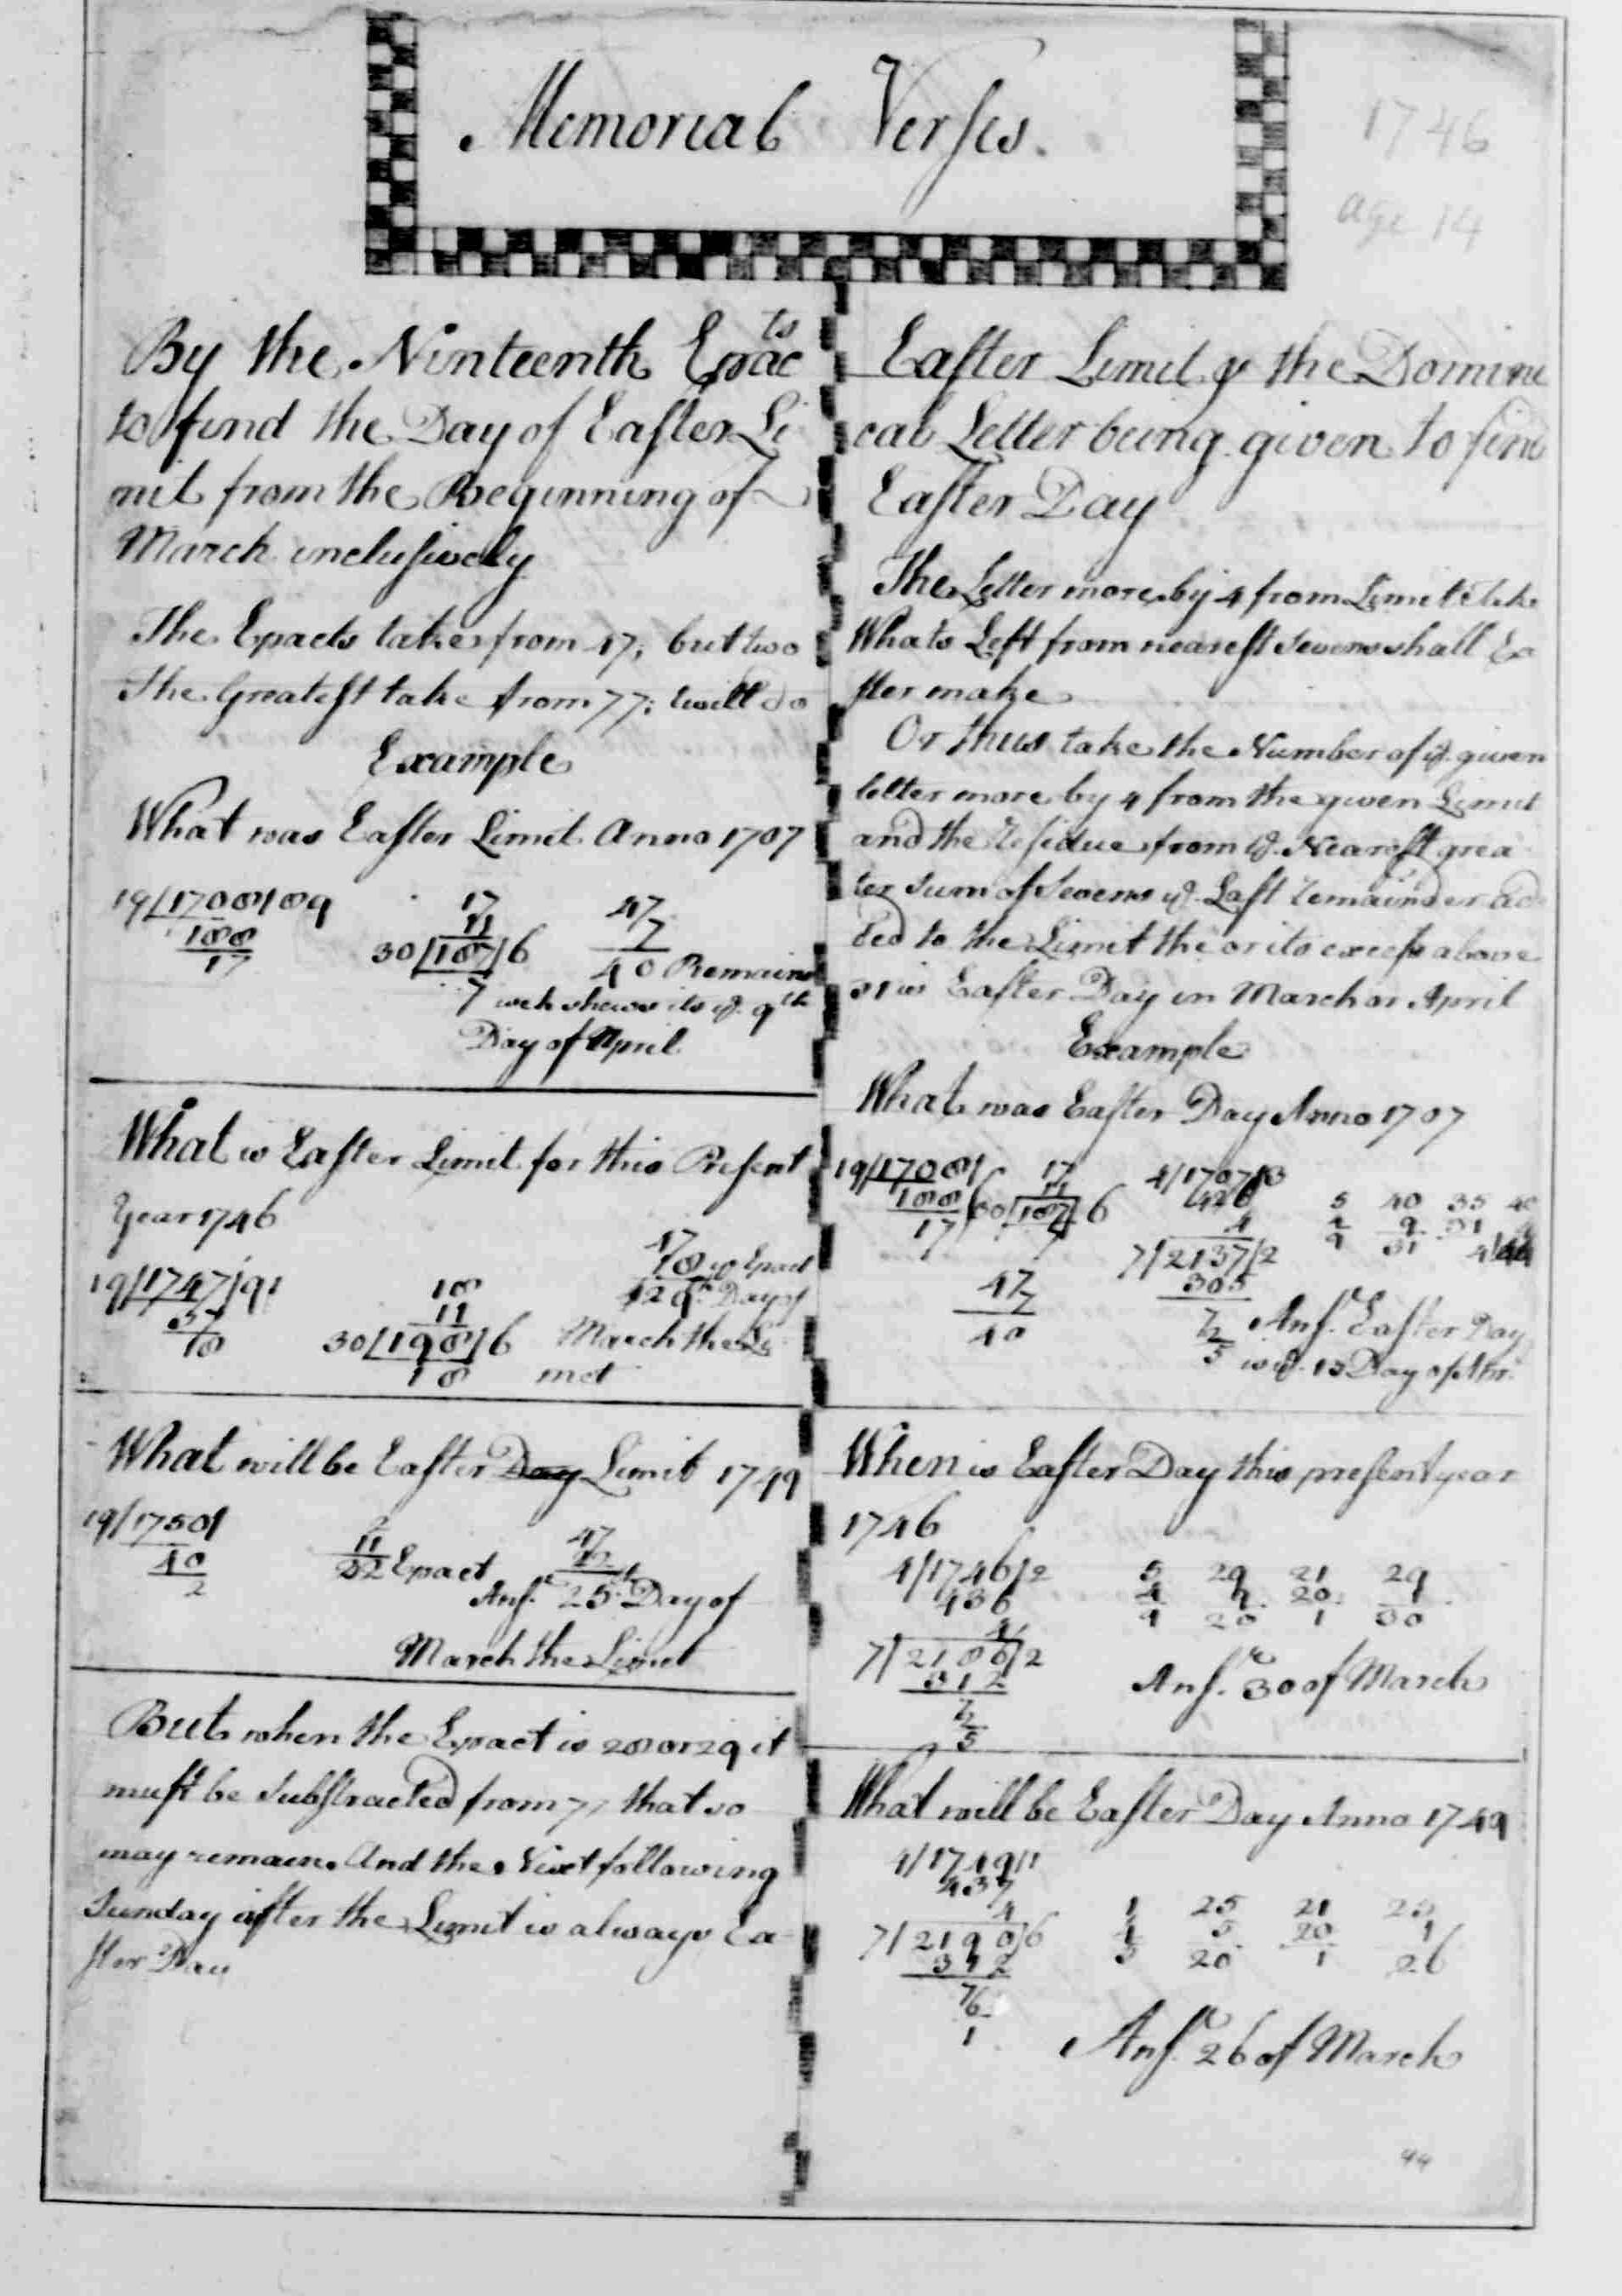 Memorial Verses.
1746
age 14
By the Ninteenth Epac ts
to find the Day of Easter Li
mit from the Beginning of
March inclusively
The Epacts take from 47; but two
The Greatest take from 77; twill do
Example
What was Easter Limit Anno 1707
19/1708/89
188
17
17
11
30/187/6
7
47
7
40 Remains
wch shews its ye. 9th
Day of April
What is Easter Limit for this Present
Year 1746
19/1747/91
37
18
18
11
30/198/6
18
47
18 ye Epact
29th Day of
March the Li
met
What will be Easter Day Limit 1749
19/1750/
40
2
2
11
22 Epact
47
22
Ansr. 25th Day of
March the Limet
But when the Epact is 28 or 29 it
must be Substracted from 77 that so
may remain. And the Next following
Sunday after the Limit is always Ea-
ster Day
Easter Limit & the Domini
cal Letter being given to find
Easter Day
The Letter more by 4 from Limit take
Whats Left from nearest Sevens shall Ea
ster make
Or thus take the Number of ye. given
letter more by 4 from the given Limit
and the Residue from ye. Nearest grea
ter Sum of Sevens ye. Last Remainder ad
ded to the Limit the or its excess above
31 is Easter Day in March or April
Example
What was Easter Day Anno 1707
19/1708/
188
17
17
11
30/187/6
7
47
7
40
4/1707/3
426
4
7/2137/2
305
7
2
5
5 40 35 40
4 9 31 4
9 31 4 44
Ansr. Easter Day
is ye. 13 Day of Apr.
When is Easter Day this present year
1746
4/1746/2
436
4
7/2186/2
312
7
2
5
5 29 21 29
4 9 20 1
9 20 1 30
Ansr. 30 of March
What will be Easter Day Anno 1749
4/1749/1
437
4
7/2190/6
312
7
6
1
1 25 21 25
4 5 20 1
5 20 1 26
Ansr. 26 of March
94